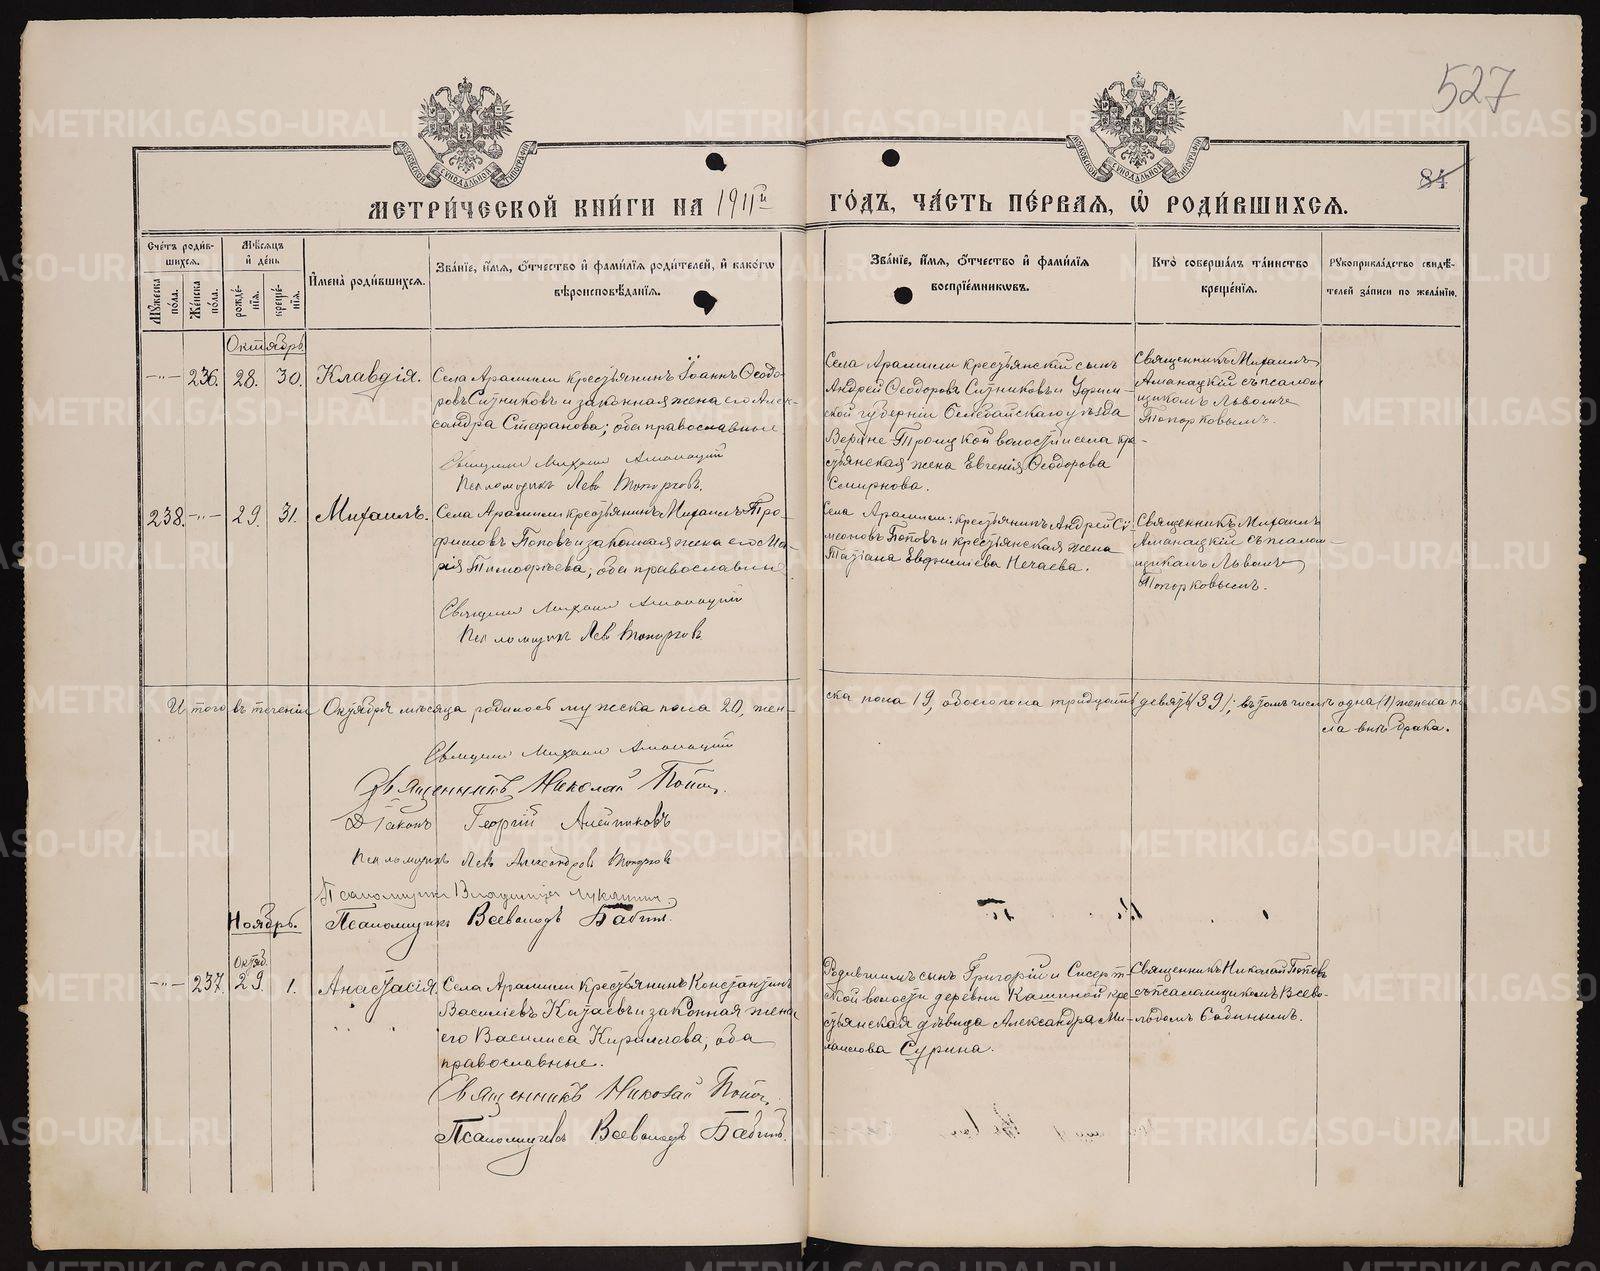 527
84
МЕТРИ́ЧЕСКОЙ КНИ́ГИ НА 1911й ГО́ДЪ, ЧА́СТЬ ПЕ́РВАЯ, Ѡ҆ РОДИ́ВШИХСЯ.
Сче́тъ роди́вшихся.
Мꙋ́жеска по́ла.
Же́нска по́ла.
Мѣ́сяцъ и҆ де́нь
рожде́нїя.
креще́нїя.
И҆мена̀ роди́вшихся.
Зва́нїе, и҆́мя, ѻ҆́тчество и҆ фами́лїя роди́телей, и҆ како́гѡ
вѣроисповѣ́данїя.
Зва́нїе, и҆́мя, ѻ҆́тчество и҆ фами́лїя
воспрїе́мникѡвъ.
Кто̀ соверша́лъ та́инство
креще́нїя.
Рꙋкоприкла́дство свидѣ́-
телей за́писи по жела́нїю.
Октябрь
-"- 236. 28. 30. Клавдія.
Села Арамили крестьянинъ Іоаннъ Ѳеодо-
ровъ Слуниковъ и законная жена его Алек-
сандра Стефанова; оба православные
Священникъ Михаилъ
Псаломщикъ Левъ Топорковъ.
Села Арамили крестьянскій сынъ
Андрей Ѳеодоровъ Слуниковъ и Уфим-
ской губерніи Белебейскаго уѣзда
Верхне Троицкой волости и села кре-
стьянская жена Евгенія Ѳеодорова
Смирнова.
Священникъ Михаилъ
съ псалом-
щикомъ Львомъ
Топорковымъ.
238. -"- 29. 31. Михаилъ.
Села Арамили крестьянинъ Михаилъ Тро-
фимовъ Поповъ и законная жена его Ма-
рія Тимофѣева; оба православные
Священникъ Михаилъ
Псаломщикъ Левъ Топорковъ
Села Арамили: крестьянинъ Андрей Си-
меоновъ Поповъ и крестьянская жена
Татіана Евфиміева Нечаева.
Священникъ Михаилъ
съ псалом-
щикомъ Львомъ
Топорковымъ.
Итого въ теченіи Октября мѣсяца родилось мужеска пола 20, жен-
ска пола 19, обоего пола тридцать девять (39); въ томъ числѣ одна (1) женска по
ла внѣ брака.
Священникъ Михаилъ
Священникъ Николай Поповъ.
Діаконъ Георгій
Псаломщикъ Левъ Александровъ Топорковъ
Псаломщикъ Владиміръ
Псаломщикъ Всеволодъ Бабинъ.
Ноябрь.
Октяб.
-"- 237. 29. 1. Анастасія.
Села Арамили крестьянинъ Константинъ
Василіевъ Катаевъ и законная жена
его Василиса Кириллова, оба
православные.
Священникъ Николай Поповъ
Псаломщикъ Всеволодъ Бабинъ.
Родившимъ сынъ Григорій и Сысерт-
ской волости деревни Кашиной кре-
стьянская дѣвица Александра Ми-
хаилова Сурина.
Священникъ Николай Поповъ
съ псаломщикомъ Всево-
лодомъ Бабинымъ.
METRIKI.GASO-URAL.RU